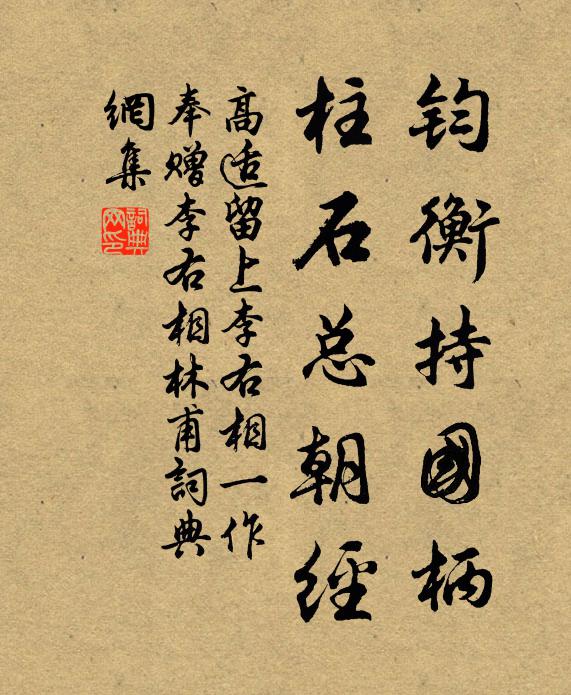 钧衡持國柄
柱石总朝經
高适留上李右相一作
奉赠李右相林甫詞典
網集
詞典网印